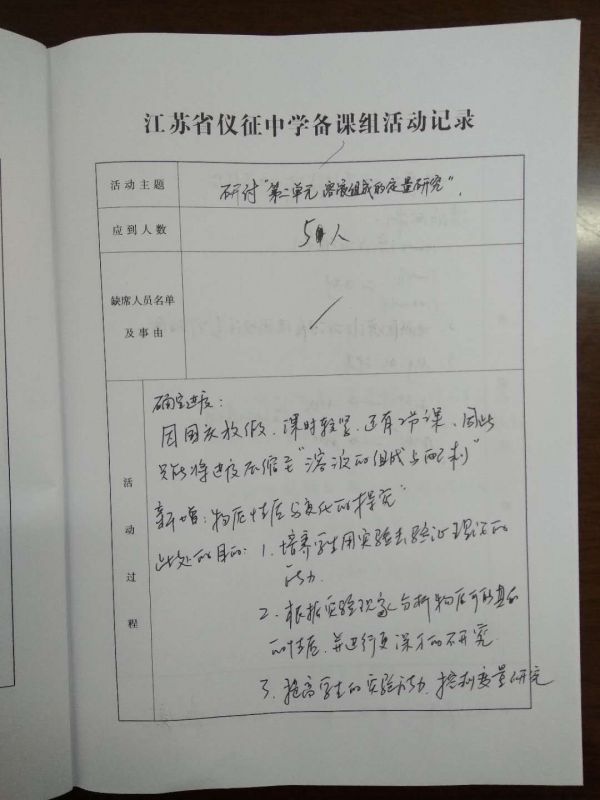 江苏省仪征中学备课组活动记录
活动主题
研讨"第二单元 溶液组成的定量研究".
应到人数
5人
缺席人员名单
及事由
活动过程
确定进度:
因国庆放假、课时较紧、还有2节课、因此
只能将进度压缩至"溶液的组成与配制"
新增:物质性质与变化的探究"
此处的目的: 1. 培养学生用实验去验证理论的
能力.
2. 根据实验现象分析物质可能具有
的性质,并进行更深入的研究.
3. 提高学生的实验能力、定量研究